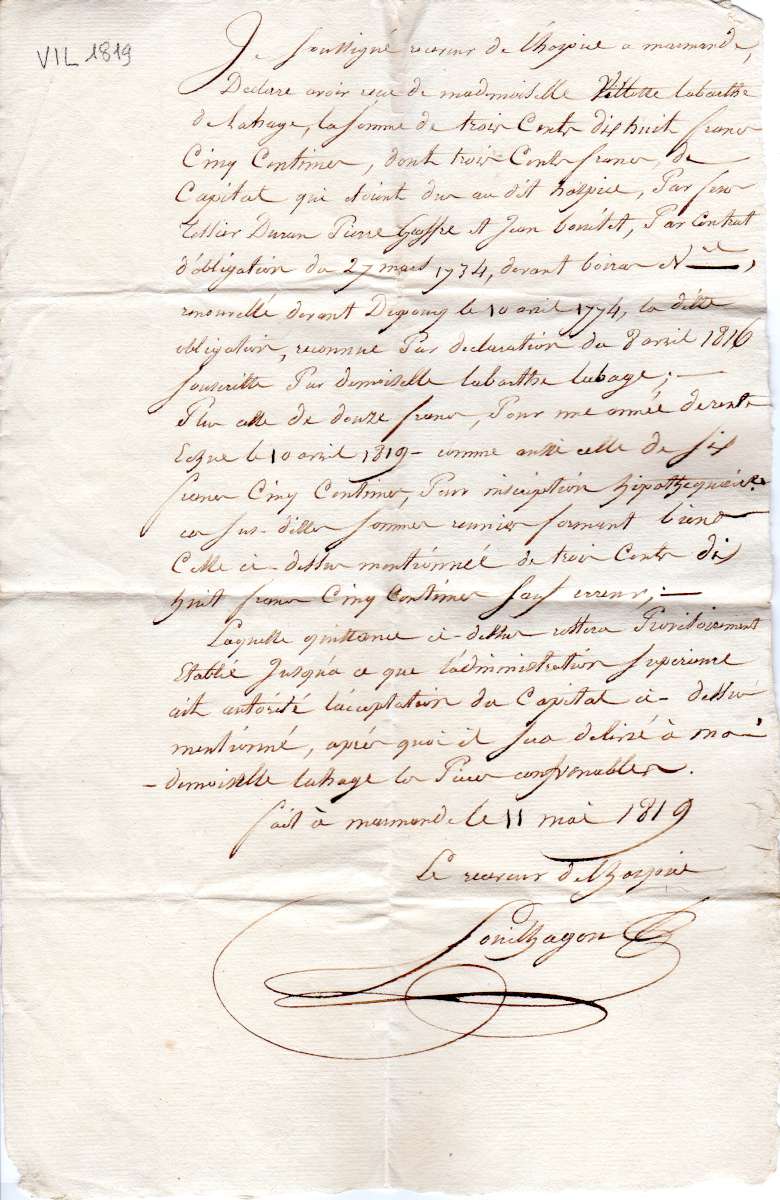 VIL 1819
Je soussigné receveur de lhospice a marmande,
Declare avoir reçu de mademoiselle labarthe
de Lahage, la somme de trois Cents dishuit francs
Cinq Centimes, dont trois Cents francs, de
Capital qui etoint dus au dit hospice, Par feus
Tessier Duran Pierre et Jean Par Contrat
d'obligation du 27 mars 1734, devant boiras N^re,
renouvellé devant le 10 avril 1774, la ditte
obligation, reconnue Par declaration du 8 avril 1816
souscritte Par demoiselle labarthe lahage; —
Plus celle de douze francs, Pour une année de rente
Echue le 10 avril 1819 - comme aussi celle de six
francs Cinq Centimes, Pour inscription hipothequaire
ces sus-dittes sommes reunies forment bien
Celle ci-dessus mentionnée de trois Cents dis
huit francs Cinq Centimes sauf erreur; —
Laquelle quittance ci-dessus restera Provisoirement
Etablie Jusqu'a ce que l'administration superieure
ait autorisé l'acceptation du Capital ci-dessus
mentionné, après quoi il sera delivré à ma
-demoiselle lahage les Pieces convenables.
fait à marmande le 11 mai 1819
Le receveur de lhospice